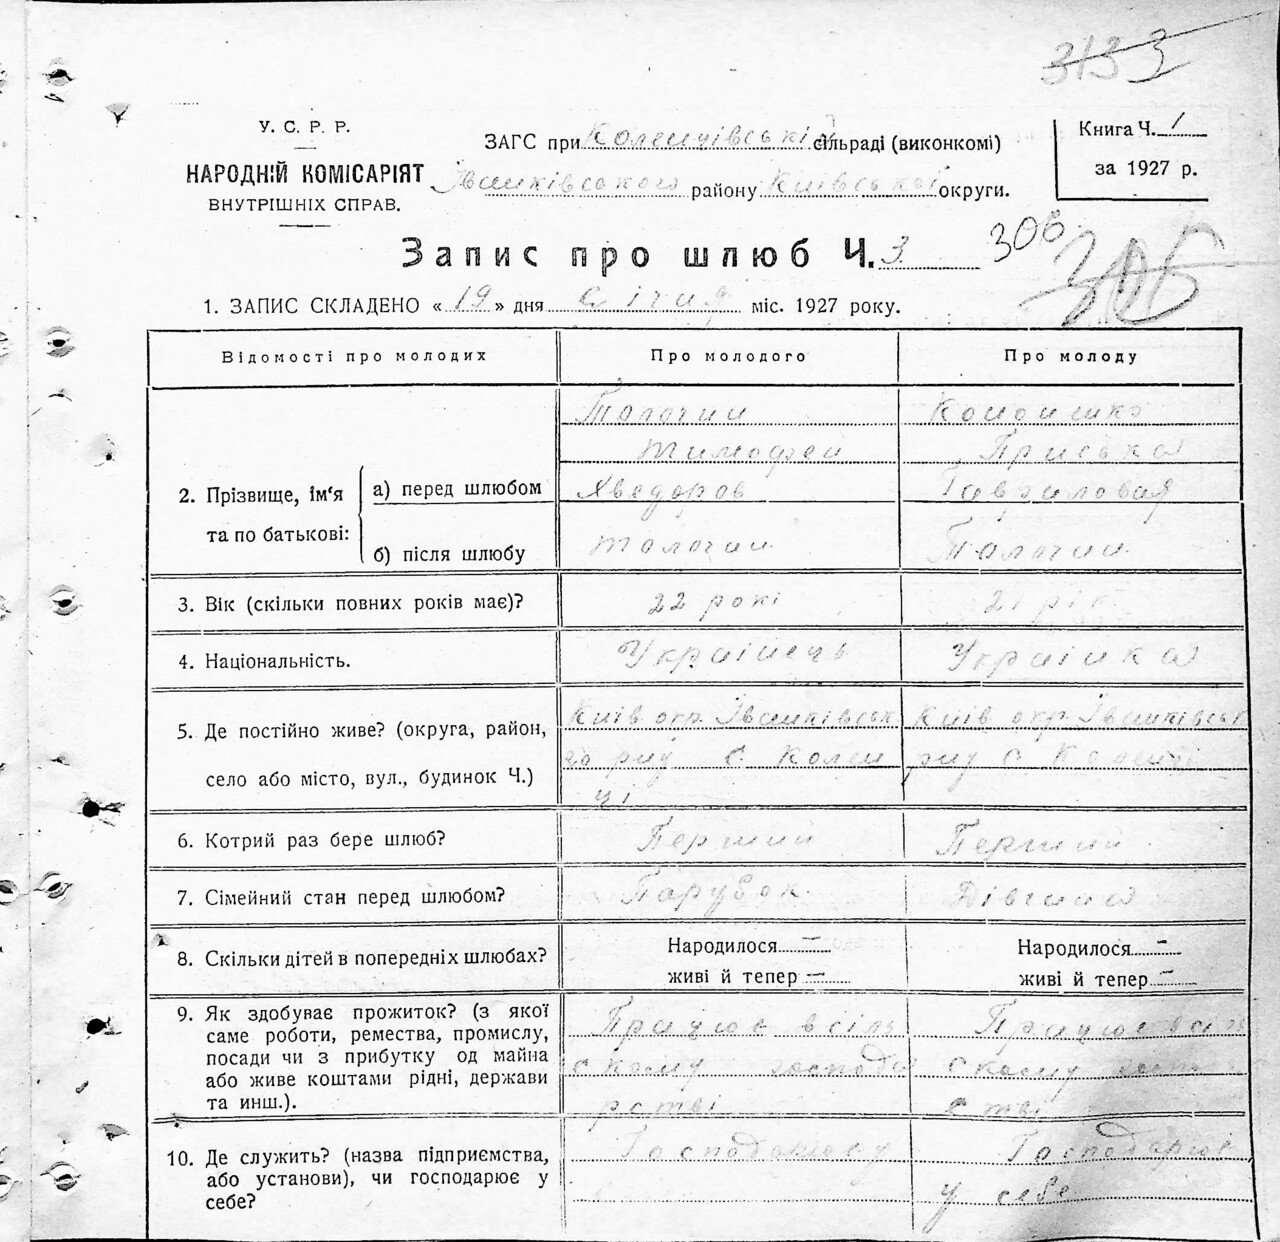 3133
У. С. Р. Р.
НАРОДНІЙ КОМІСАРІЯТ
ВНУТРІШНІХ СПРАВ.
ЗАГС при Коленцівській сільраді (виконкомі)
Іванківського району Київської округи.
Книга Ч. 1
за 1927 р.
Запис про шлюб Ч. 3
306
306
1. ЗАПИС СКЛАДЕНО «19» дня січня міс. 1927 року.
Відомості про молодих
Про молодого
Про молоду
2. Прізвище, ім'я та по батькові:
а) перед шлюбом
Толочин
Тимофей
Хведоров
Приська
Гавриловая
б) після шлюбу
Толочин
Толочин
3. Вік (скільки повних років має)?
22 рокі
21 рік
4. Національність.
Українець
Українка
5. Де постійно живе? (округа, район,
село або місто, вул., будинок Ч.)
Київ окр. Іванківськ
го рну с Колен
ці
Київ окр Іванківськ
рну с Коленці
6. Котрий раз бере шлюб?
Перший
Перший
7. Сімейний стан перед шлюбом?
Парубок
Дівчина
8. Скільки дітей в попередніх шлюбах?
Народилося —
живі й тепер —
Народилося —
живі й тепер —
9. Як здобуває прожиток? (з якої
саме роботи, ремества, промислу,
посади чи з прибутку од майна
або живе коштами рідні, держави
та инш.).
Працює в сіль
ському господа
рстві
Працює в сіль
ському
стві
10. Де служить? (назва підприємства,
або установи), чи господарює у
себе?
Господарює у
Господарює
у себе